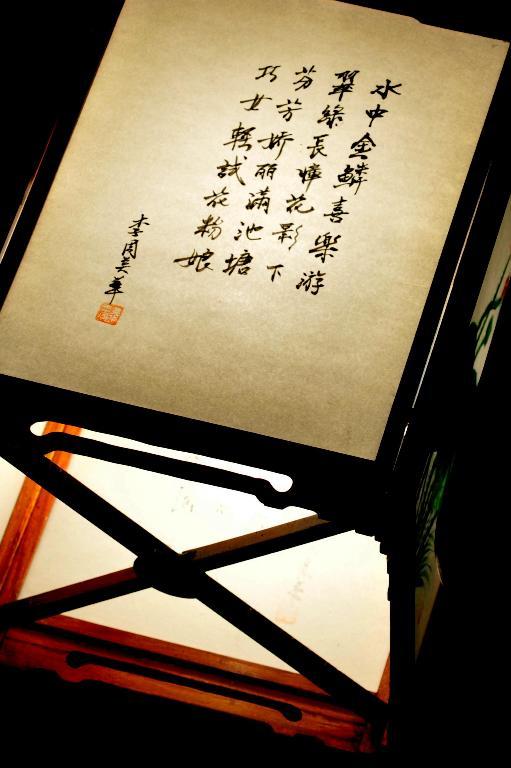 水中金鱗喜樂游
翠綠長嶂花影下
芬芳嬌丽滿池塘
巧女輕試花粉娘
李周美華